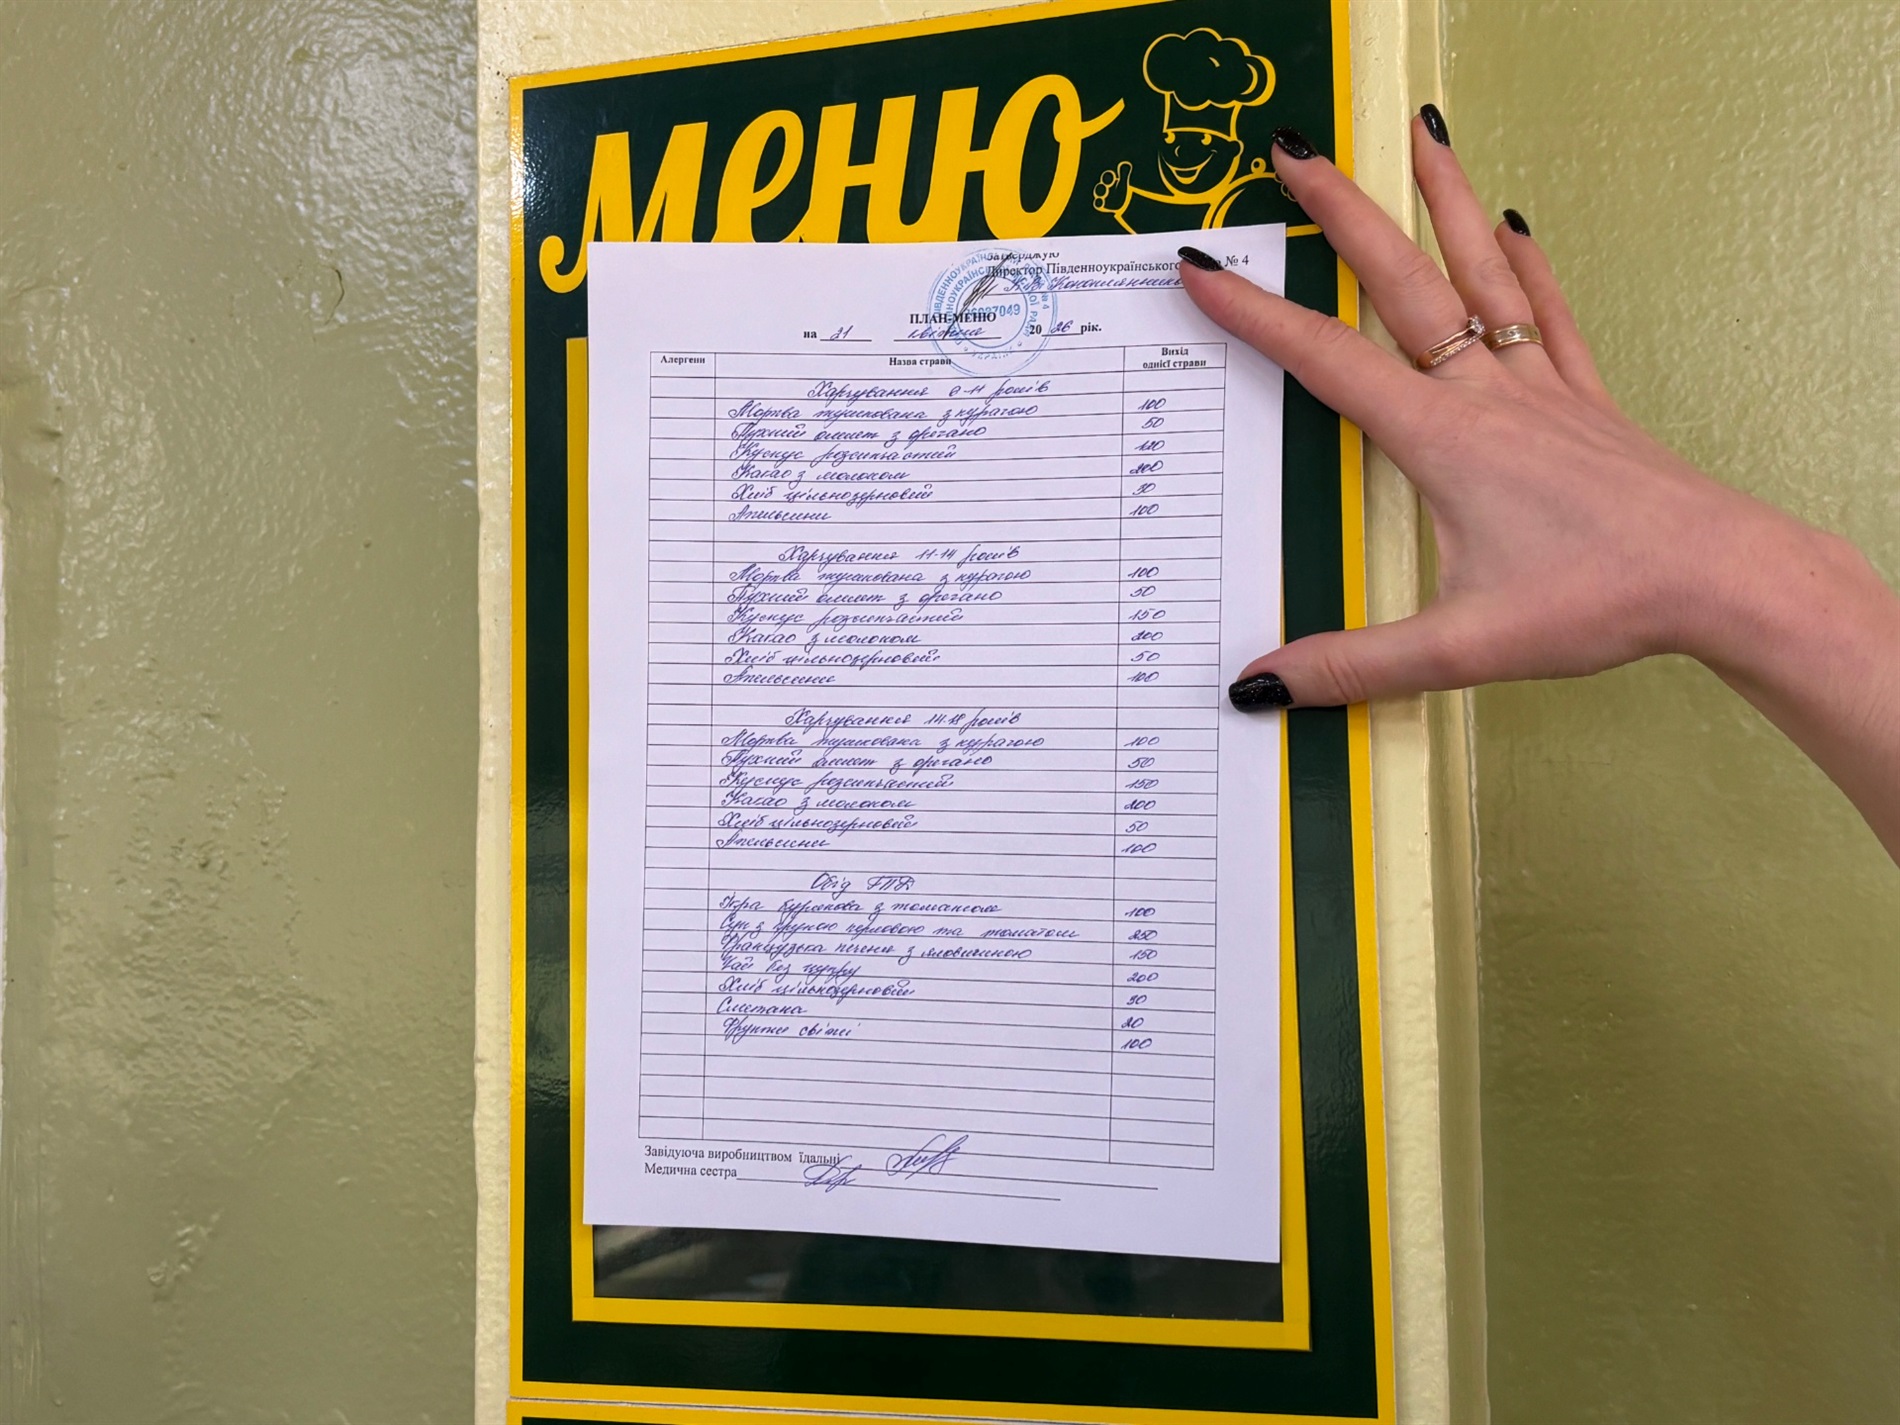 меню
Затверджую
Директор Південноукраїнського № 4
ПЛАН-МЕНЮ
на 21 квітня 2026 рік.
Алергени Назва страви Вихід однієї страви
Харчування 6-11 років
Морква тушкована з курагою 100
Пухкий омлет з орегано 50
Кускус розсипчастий 120
Какао з молоком 200
Хліб цільнозерновий 30
Апельсини 100
Харчування 11-14 років
Морква тушкована з курагою 100
Пухкий омлет з орегано 50
Кускус розсипчастий 150
Какао з молоком 200
Хліб цільнозерновий 50
Апельсини 100
Харчування 14-18 років
Морква тушкована з курагою 100
Пухкий омлет з орегано 50
Кускус розсипчастий 150
Какао з молоком 200
Хліб цільнозерновий 50
Апельсини 100
Обід ГПД
Ікра бурякова з томатом 100
Суп з крупою перловою та томатом 250
Французька печеня з яловичиною 150
Чай без цукру 200
Хліб цільнозерновий 30
Сметана 20
Фрукти свіжі 100
Завідуюча виробництвом їдальні
Медична сестра